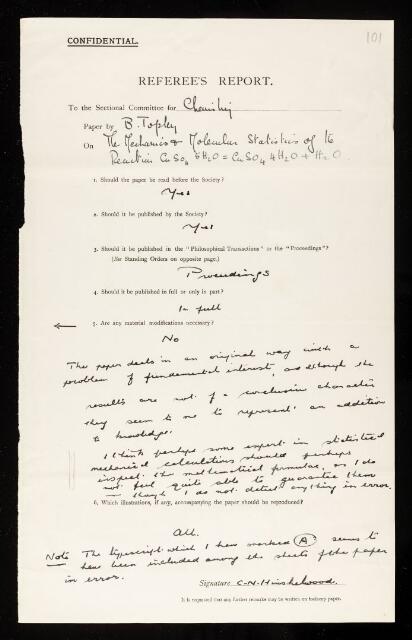 CONFIDENTIAL.
101
REFEREE'S REPORT.
To the Sectional Committee for Chemistry
Paper by B. Topley
On The Mechanics & Molecular Statistics of the
Reaction CuSO4 5H2O = CuSO4 4H2O + H2O
1. Should the paper be read before the Society?
Yes
2. Should it be published by the Society?
Yes
3. Should it be published in the "Philosophical Transactions" or the "Proceedings"?
(See Standing Orders on opposite page.)
Proceedings
4. Should it be published in full or only in part?
In full
5. Are any material modifications necessary?
No
The paper deals in an original way with a
problem of fundamental interest, and although the
results are not of a conclusive character
they seem to me to represent an addition
to knowledge.
I think perhaps some expert in statistical
mechanical calculations should perhaps
inspect the mathematical formulae, as I do
not feel quite able to guarantee them
– though I do not detect anything in error.
6. Which illustrations, if any, accompanying the paper should be reproduced?
All.
Note The typescript which I have marked (A) seems to
have been included among the sheets of the paper
in error.
Signature C. N. Hinshelwood.
It is requested that any further remarks may be written on ordinary paper.